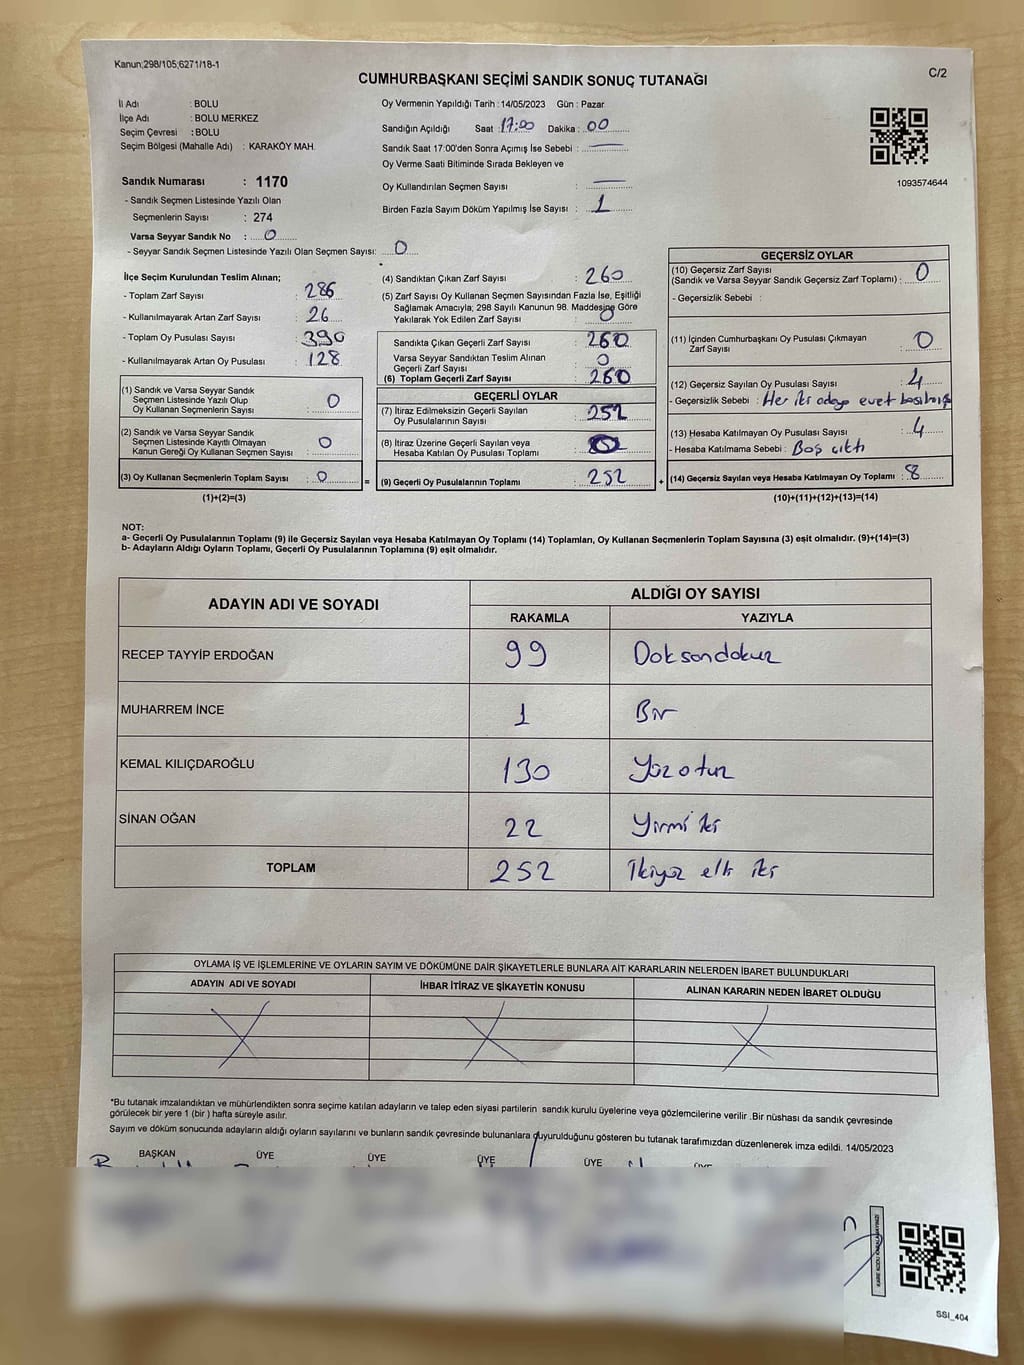 Kanun;298/105;6271/18-1
CUMHURBAŞKANI SEÇİMİ SANDIK SONUÇ TUTANAĞI
C/2
İl Adı : BOLU
İlçe Adı : BOLU MERKEZ
Seçim Çevresi : BOLU
Seçim Bölgesi (Mahalle Adı) : KARAKÖY MAH.
Sandık Numarası : 1170
- Sandık Seçmen Listesinde Yazılı Olan
Seçmenlerin Sayısı : 274
Varsa Seyyar Sandık No : 0
- Seyyar Sandık Seçmen Listesinde Yazılı Olan Seçmen Sayısı: 0
Oy Vermenin Yapıldığı Tarih : 14/05/2023 Gün : Pazar
Sandığın Açıldığı Saat : 17:00 Dakika : 00
Sandık Saat 17:00'den Sonra Açımış İse Sebebi : —
Oy Verme Saati Bitiminde Sırada Bekleyen ve
Oy Kullandırılan Seçmen Sayısı : —
Birden Fazla Sayım Döküm Yapılmış İse Sayısı : 1
1093574644
İlçe Seçim Kurulundan Teslim Alınan;
- Toplam Zarf Sayısı : 286
- Kullanılmayarak Artan Zarf Sayısı : 26
- Toplam Oy Pusulası Sayısı : 390
- Kullanılmayarak Artan Oy Pusulası : 128
(1) Sandık ve Varsa Seyyar Sandık
Seçmen Listesinde Yazılı Olup
Oy Kullanan Seçmenlerin Sayısı : 0
(2) Sandık ve Varsa Seyyar Sandık
Seçmen Listesinde Kayıtlı Olmayan
Kanun Gereği Oy Kullanan Seçmen Sayısı : 0
(3) Oy Kullanan Seçmenlerin Toplam Sayısı : 0
(1)+(2)=(3)
(4) Sandıktan Çıkan Zarf Sayısı : 260
(5) Zarf Sayısı Oy Kullanan Seçmen Sayısından Fazla İse, Eşitliği
Sağlamak Amacıyla; 298 Sayılı Kanunun 98. Maddesine Göre
Yakılarak Yok Edilen Zarf Sayısı : 0
Sandıkta Çıkan Geçerli Zarf Sayısı : 260
Varsa Seyyar Sandıktan Teslim Alınan
Geçerli Zarf Sayısı : 0
(6) Toplam Geçerli Zarf Sayısı : 260
GEÇERLİ OYLAR
(7) İtiraz Edilmeksizin Geçerli Sayılan
Oy Pusulalarının Sayısı : 252
(8) İtiraz Üzerine Geçerli Sayılan veya
Hesaba Katılan Oy Pusulası Toplamı :
= (9) Geçerli Oy Pusulalarının Toplamı : 252 +
GEÇERSİZ OYLAR
(10) Geçersiz Zarf Sayısı
(Sandık ve Varsa Seyyar Sandık Geçersiz Zarf Toplamı) : 0
- Geçersizlik Sebebi :
(11) İçinden Cumhurbaşkanı Oy Pusulası Çıkmayan
Zarf Sayısı : 0
(12) Geçersiz Sayılan Oy Pusulası Sayısı : 4
- Geçersizlik Sebebi : Her iki adaya evet basılmış
(13) Hesaba Katılmayan Oy Pusulası Sayısı : 4
- Hesaba Katılmama Sebebi : Boş çıktı
(14) Geçersiz Sayılan veya Hesaba Katılmayan Oy Toplamı : 8
(10)+(11)+(12)+(13)=(14)
NOT:
a- Geçerli Oy Pusulalarının Toplamı (9) ile Geçersiz Sayılan veya Hesaba Katılmayan Oy Toplamı (14) Toplamları, Oy Kullanan Seçmenlerin Toplam Sayısına (3) eşit olmalıdır. (9)+(14)=(3)
b- Adayların Aldığı Oyların Toplamı, Geçerli Oy Pusulalarının Toplamına (9) eşit olmalıdır.
ADAYIN ADI VE SOYADI
ALDIĞI OY SAYISI
RAKAMLA YAZIYLA
RECEP TAYYİP ERDOĞAN 99 Doksandokuz
MUHARREM İNCE 1 Bir
KEMAL KILIÇDAROĞLU 130 Yüz otuz
SİNAN OĞAN 22 Yirmi iki
TOPLAM 252 İkiyüz elli iki
OYLAMA İŞ VE İŞLEMLERİNE VE OYLARIN SAYIM VE DÖKÜMÜNE DAİR ŞİKAYETLERLE BUNLARA AİT KARARLARIN NELERDEN İBARET BULUNDUKLARI
ADAYIN ADI VE SOYADI İHBAR İTİRAZ VE ŞİKAYETİN KONUSU ALINAN KARARIN NEDEN İBARET OLDUĞU
*Bu tutanak imzalandıktan ve mühürlendikten sonra seçime katılan adayların ve talep eden siyasi partilerin sandık kurulu üyelerine veya gözlemcilerine verilir .Bir nüshası da sandık çevresinde
görülecek bir yere 1 (bir ) hafta süreyle asılır.
Sayım ve döküm sonucunda adayların aldığı oyların sayılarını ve bunların sandık çevresinde bulunanlara duyurulduğunu gösteren bu tutanak tarafımızdan düzenlenerek imza edildi. 14/05/2023
BAŞKAN ÜYE ÜYE ÜYE ÜYE ÜYE
SSI_404